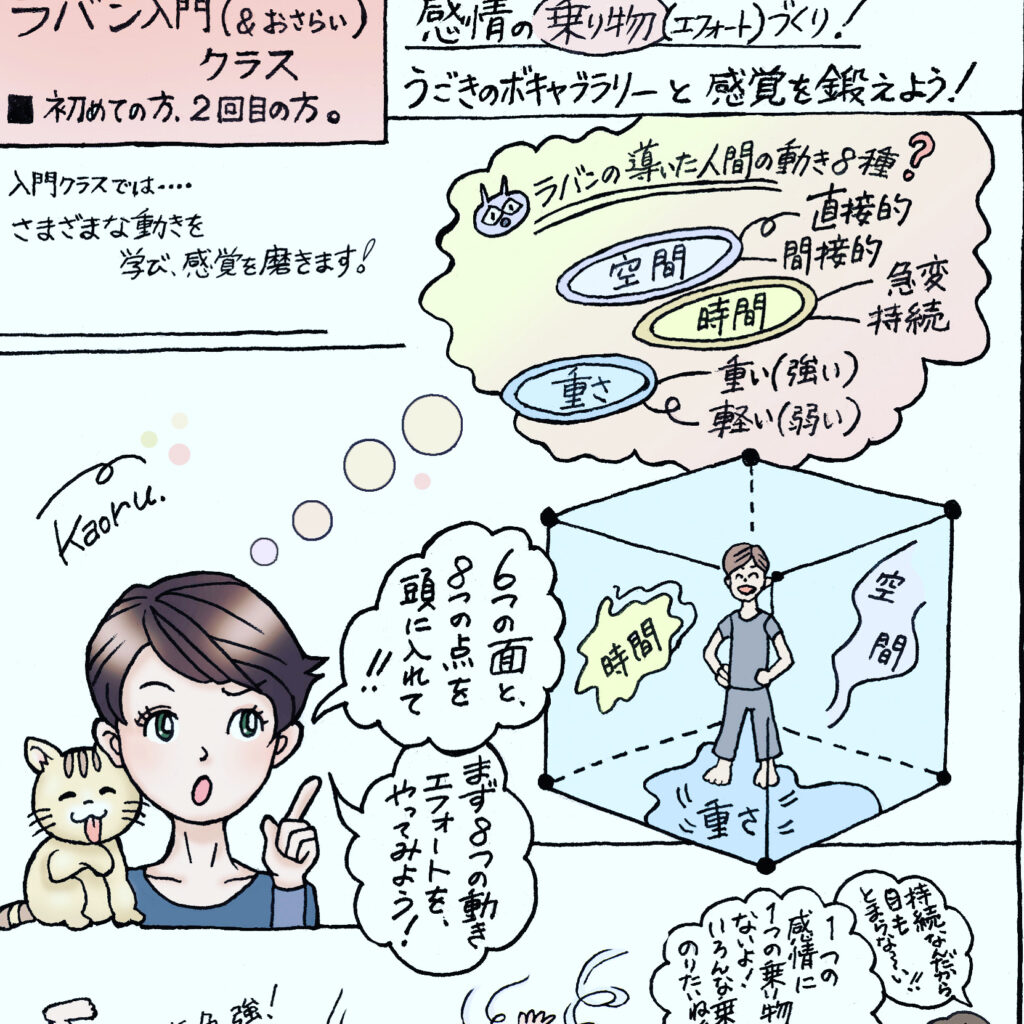 ラバン入門(&おさらい)
クラス
■初めての方、2回目の方。
感情の乗り物(エフォート)づくり!
うごきのボキャブラリーと感覚を鍛えよう!
入門クラスでは‥‥
さまざまな動きを
学び、感覚を磨きます!
ラバンの導いた人間の動き8種?
空間
直接的
間接的
時間
急変
持続
重さ
重い(強い)
軽い(弱い)
Kaoru.
6つの面と、
8つの点を
頭に入れて
!!
まず8つの動き
エフォートを、
やってみよう!
時間
空
間
重さ
持続なんだから
目も
とまらな〜い!!
1つの
感情に
1つの乗り物
ないよ!
いろんな乗
のりたいね
強!